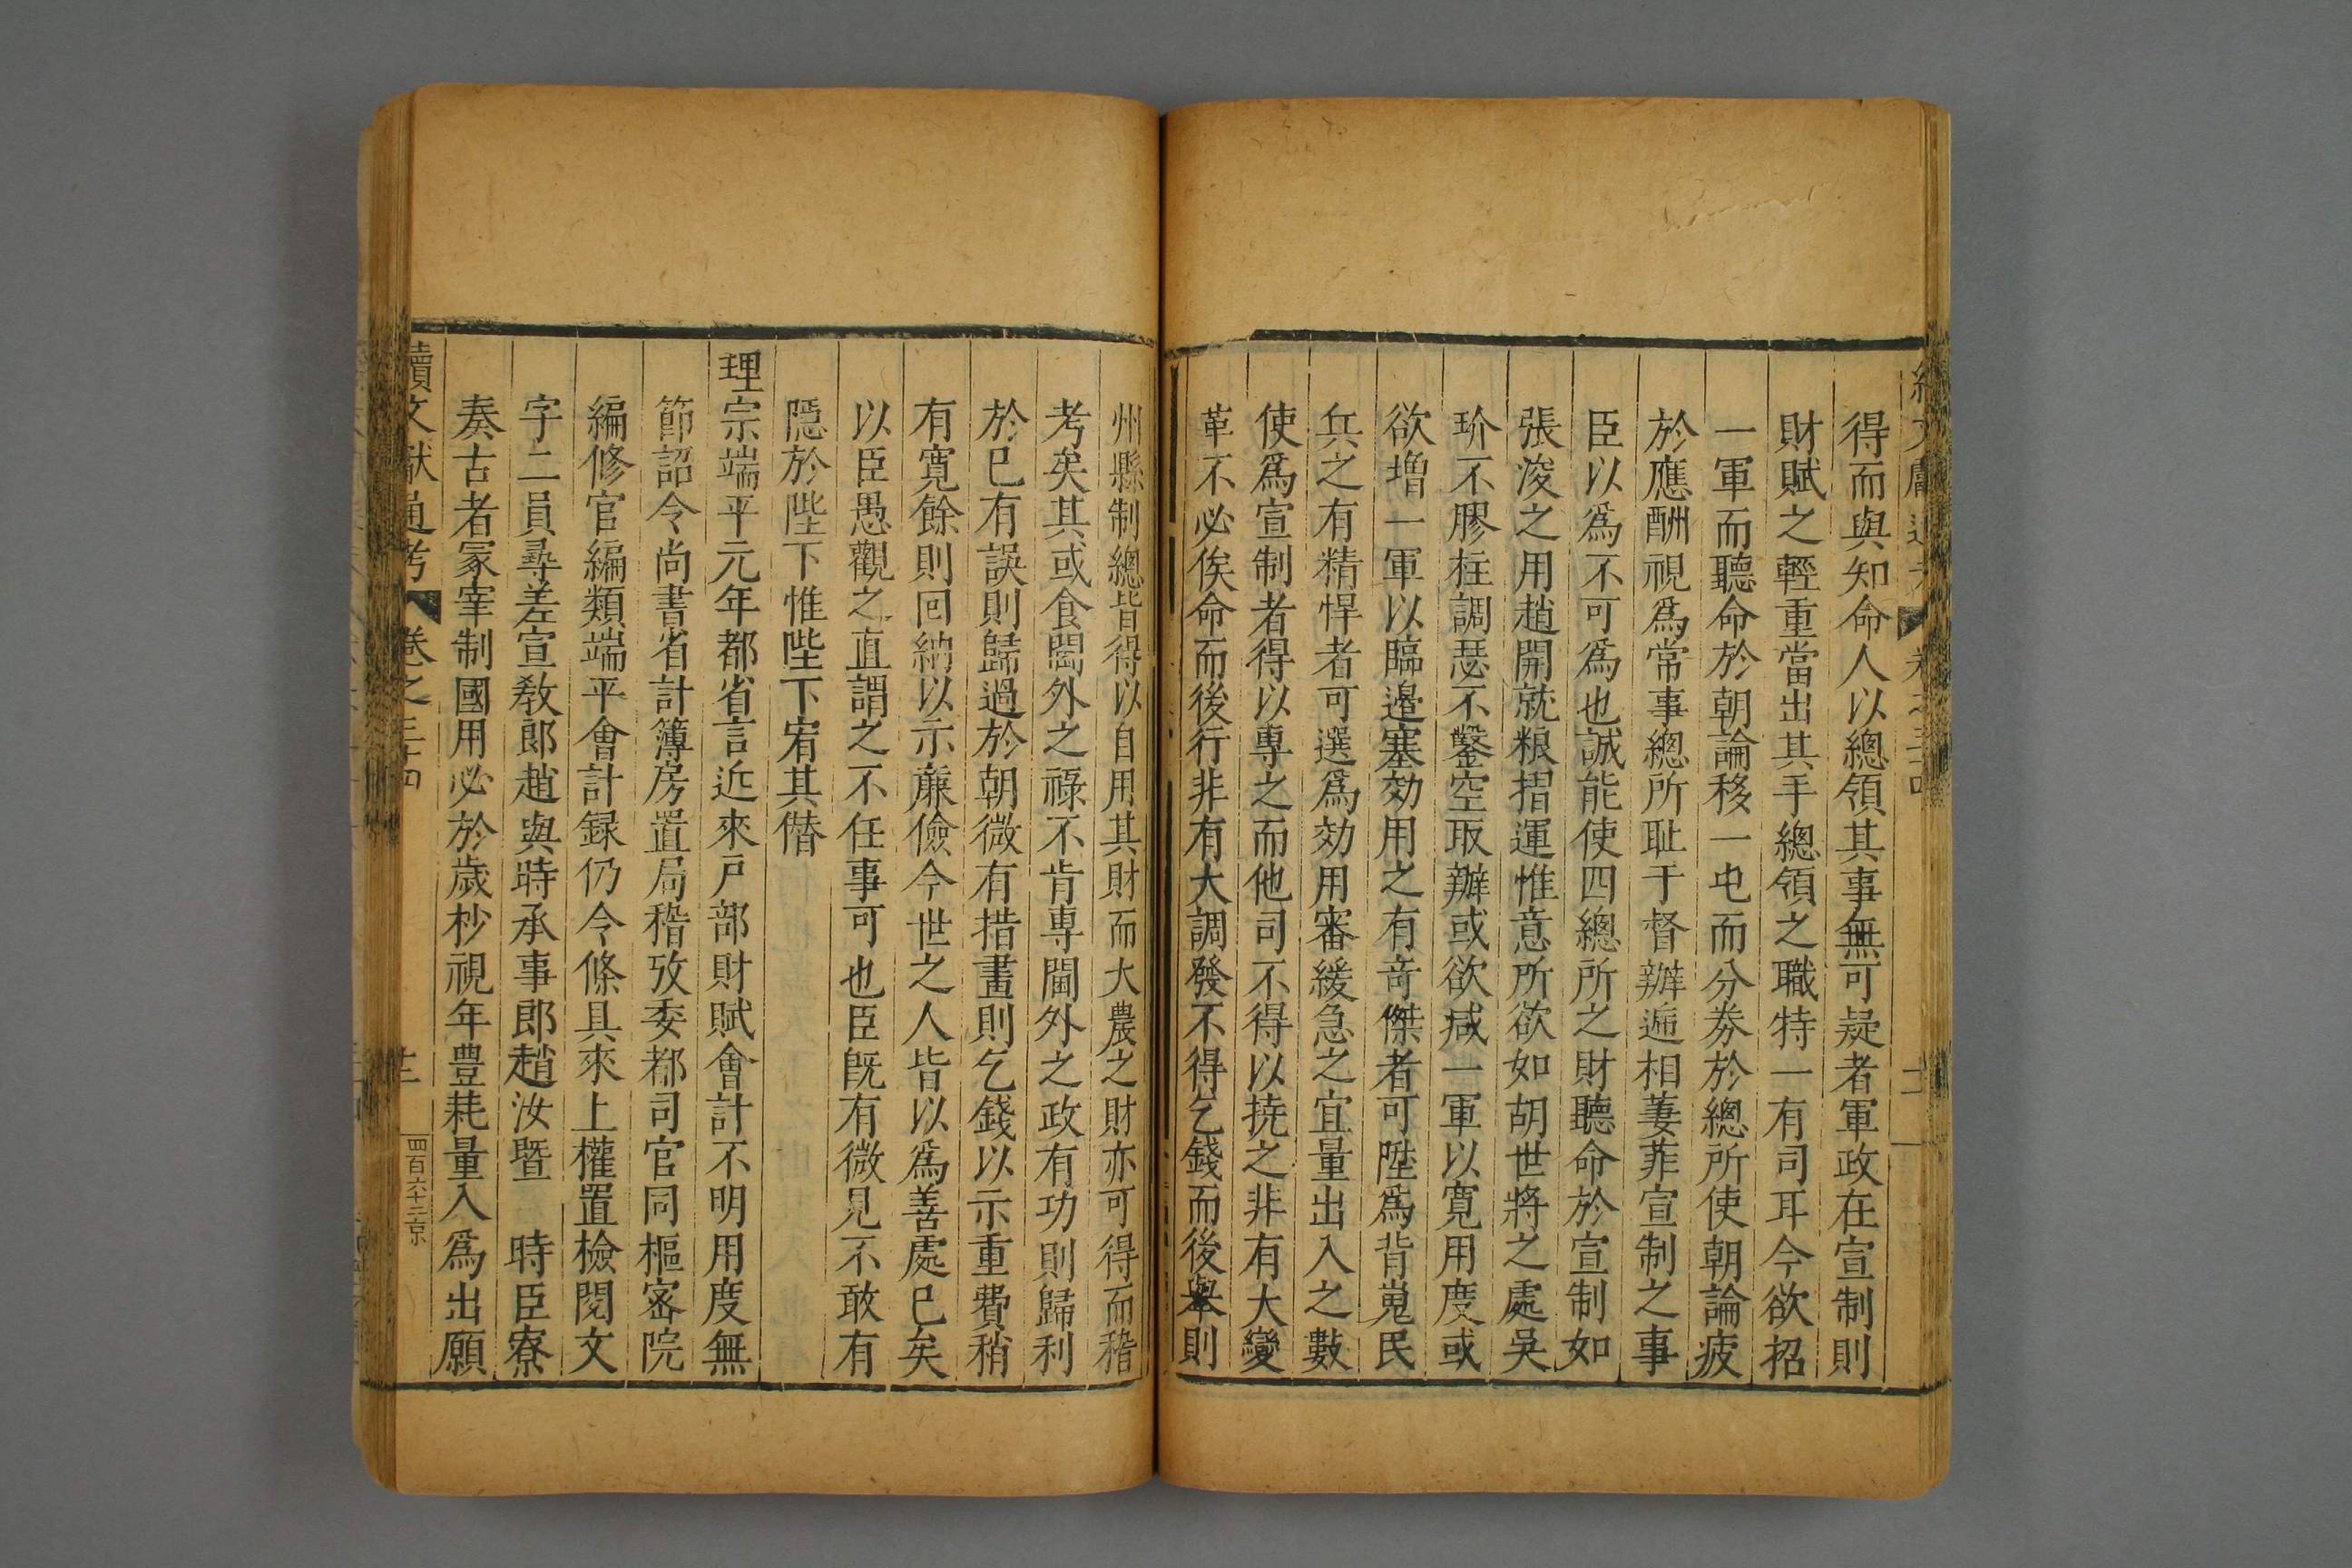 得而與知命人以總領其事無可疑者軍政在宣制則
財賦之輕重當出其手總領之職特一有司耳今欲招
一軍而聽命於朝論移一屯而分券於總所使朝論疲
於應酬視爲常事總所耻于督辦遞相萋菲宣制之事
臣以爲不可爲也誠能使四總所之財聽命於宣制如
張浚之用趙開就粮揩運惟意所欲如胡世將之處吳
玠不膠柱調瑟不鑿空取辦或欲减一軍以寬用度或
欲增一軍以臨邉塞効用之有竒傑者可陞爲背嵬民
兵之有精悍者可選爲効用審緩急之宜量出入之數
使爲宣制者得以專之而他司不得以撓之非有大變
革不必俟命而後行非有大調發不得乞錢而後舉則
州縣制總皆得以自用其財而大農之財亦可得而稽
考矣其或食閫外之祿不肯專閫外之政有功則歸利
於巳有誤則歸過於朝微有措畫則乞錢以示重費稍
有寬餘則回納以示廉儉今世之人皆以爲善處巳矣
以臣愚觀之直謂之不任事可也臣既有微見不敢有
隱於陛下惟陛下宥其僣
理宗端平元年都省言近來戸部財賦會計不明用度無
節詔令尚書省計簿房置局稽攷委都司官同樞密院
編修官編類端平會計録仍令條具來上權置檢閱文
字二員尋差宣教郎趙與時承事郎趙汝暨 時臣寮
奏古者冢宰制國用必於歲杪視年豊耗量入爲出願
續文獻通考 卷之三十四 四百六十三京